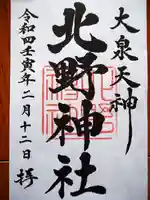 大泉天神
北野神社
令和四壬寅年二月十二日 拝